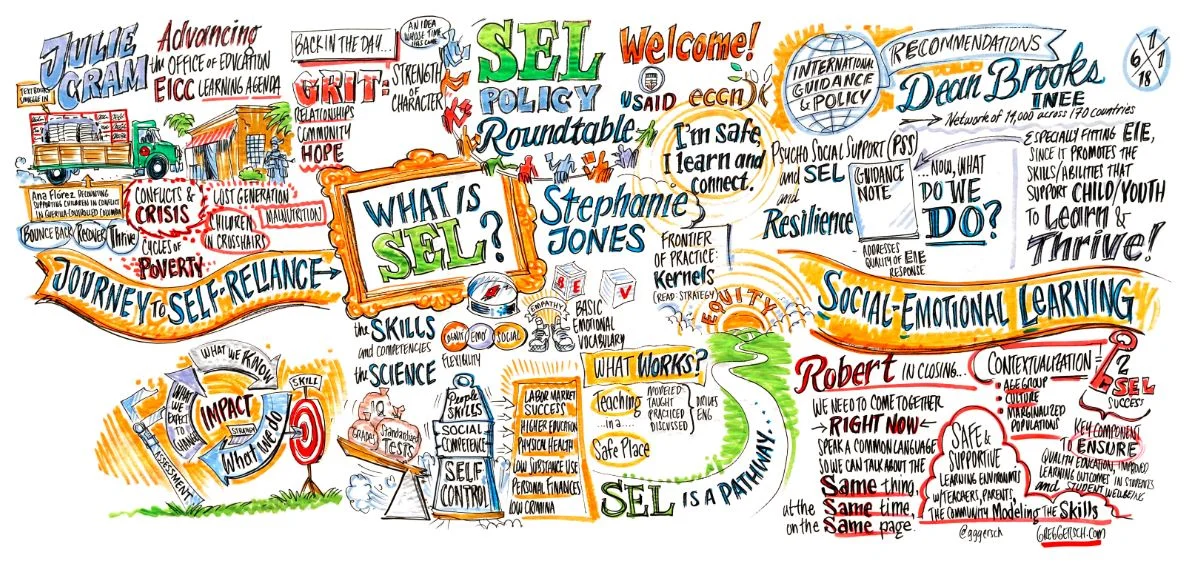 JULIE
GRAM
Advancing
the OFFICE of EDUCATION
EICC LEARNING AGENDA
TEXT BOOKS
SMUGGLE IN
Ana Flórez RECOUNTING
SUPPORTING CHILDREN IN CONFLICT
IN GUERILLA CONTROLLED
BOUNCE BACK
RECOVER
Thrive
CONFLICTS &
CRISIS
CYCLES OF
POVERTY
LOST GENERATION
CHILDREN
IN CROSSHAIRS
MALNUTRITION
BACK IN THE DAY...
AN IDEA
WHOSE TIME
HAS COME
GRIT:
STRENGTH
OF
CHARACTER
RELATIONSHIPS
COMMUNITY
HOPE
SEL
POLICY
Roundtable
Welcome!
USAID
eccn
I'm safe,
I learn and
connect.
WHAT IS
SEL?
Stephanie
JONES
FRONTIER
OF PRACTICE:
Kernels
(READ · STRATEGY)
INTERNATIONAL
GUIDANCE
& POLICY
RECOMMENDATIONS
Dean Brooks
INEE
Network of 14,000 across 170 countries
6
7
18
PSYCHO SOCIAL SUPPORT (PSS)
and SEL
and
Resilience
GUIDANCE
NOTE
ADDRESSES
QUALITY OF EIE
RESPONSE
...NOW, WHAT
DO WE
DO?
ESPECIALLY FITTING EIE,
SINCE IT PROMOTES THE
SKILLS/ABILITIES THAT
SUPPORT CHILD/YOUTH
TO Learn &
Thrive!
JOURNEY TO SELF-RELIANCE
SOCIAL-EMOTIONAL LEARNING
WHAT WE KNOW
WHAT
WE
EXPECT
TO
CHANGE
What we do
IMPACT
STRATEGY
ASSESSMENT
SKILL
the SKILLS
and COMPETENCIES
the SCIENCE
EMO
SOCIAL
FLEXIBILITY
EMPATHY
B E
V
BASIC
EMOTIONAL
VOCABULARY
IQ
GRADES
Standardized
TESTS
People
SKILLS
SOCIAL
COMPETENCE
SELF
CONTROL
LABOR MARKET
SUCCESS
HIGHER EDUCATION
PHYSICAL HEALTH
LOW SUBSTANCE USE
PERSONAL FINANCES
LOW CRIMINA
WHAT WORKS?
Teaching
...in a...
Safe Place
MODELED
TAUGHT
PRACTICED
DISCUSSED
DRIVES
ENG
EQUITY
SEL IS A PATHWAY...
Robert IN CLOSING...
WE NEED TO COME TOGETHER
RIGHT NOW
SPEAK A COMMON LANGUAGE
SO WE CAN TALK ABOUT THE
Same thing,
at the Same time,
on the Same page.
CONTEXTUALIZATION =
AGE GROUP
CULTURE
MARGINALIZED
POPULATIONS
2
SEL
SUCCESS
SAFE &
SUPPORTIVE
LEARNING ENVIRONMTS
W/TEACHERS, PARENTS,
THE COMMUNITY Modeling THE Skills
KEY COMPONENT
TO ENSURE
QUALITY EDUCATION, IMPROVED
LEARNING OUTCOMES IN STUDENTS
and STUDENT WELLBEING
@gggersch
GREGGERSCH.com